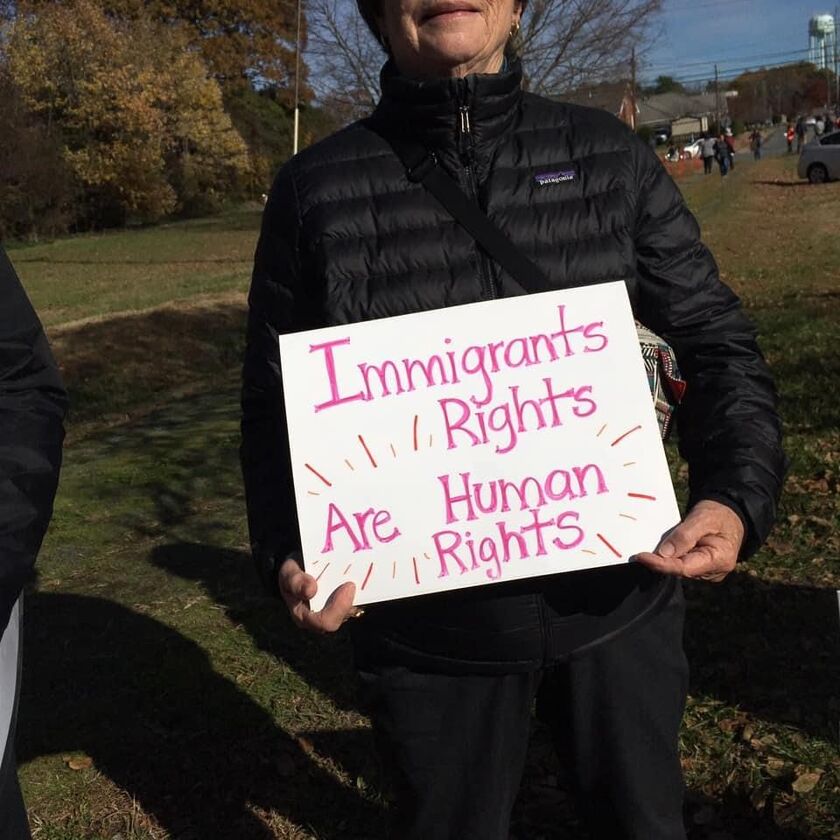 patagonia
Immigrants
Rights
Are Human
Rights